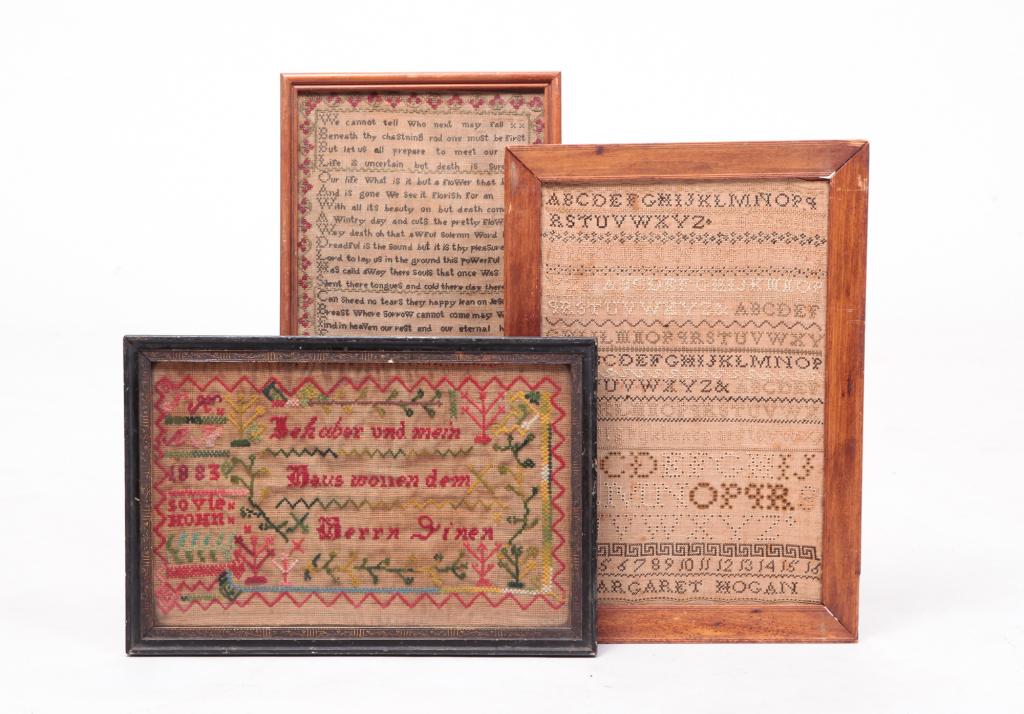 We cannot tell Who next may Fall
Beneath thy chastning rod one must be First
But let us all prepare to meet our
Life is uncertain but death is Sure
Our life What is it but a Flower that
And is gone We See it Florish for an
With all its beauty on but death com
A Wintry day and cuts the pretty Flow
Way death oh that awful Solemn Word
Dreadful is the Sound but it is thy pleasure
Lord to lay us in the ground this powerful
Has calld away there Souls that once Was
Silent there tongues and cold there clay there
Can Sheed no tears they happy lean on Jesu
Breast Where Sorrow cannot come may W
And in heaven our rest and our eternal h
ABCDEFGHIJKLMNOPQ
RSTUVWXYZ
ABCDEFGHIJKLMNOP
QRSTUVWXYZ& ABCDEF
LMNOPQRSTUVWXY
CDEFGHIJKLMNOP
UVWXYZ& ABCDEF
MNOPQRSTUVW
CDEFGHIJ
MNOPQR
VWXYZ
5 6 7 8 9 10 11 12 13 14 15 16
ARGARET HOGAN
Ich aber und mein
Haus wollen dem
Herrn Dinen
1883
SOVIE
HOMN